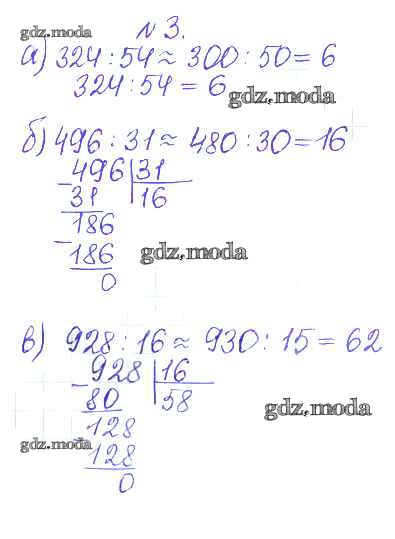 gdz.moda
№ 3.
а) 324 : 54 ≈ 300 : 50 = 6
324 : 54 = 6
gdz.moda
б) 496 : 31 ≈ 480 : 30 = 16
496 | 31
- 31 | 16
186
- 186
0
gdz.moda
в) 928 : 16 ≈ 930 : 15 = 62
- 928 | 16
80 | 58
gdz.moda
- 128
gdz.moda
128
0